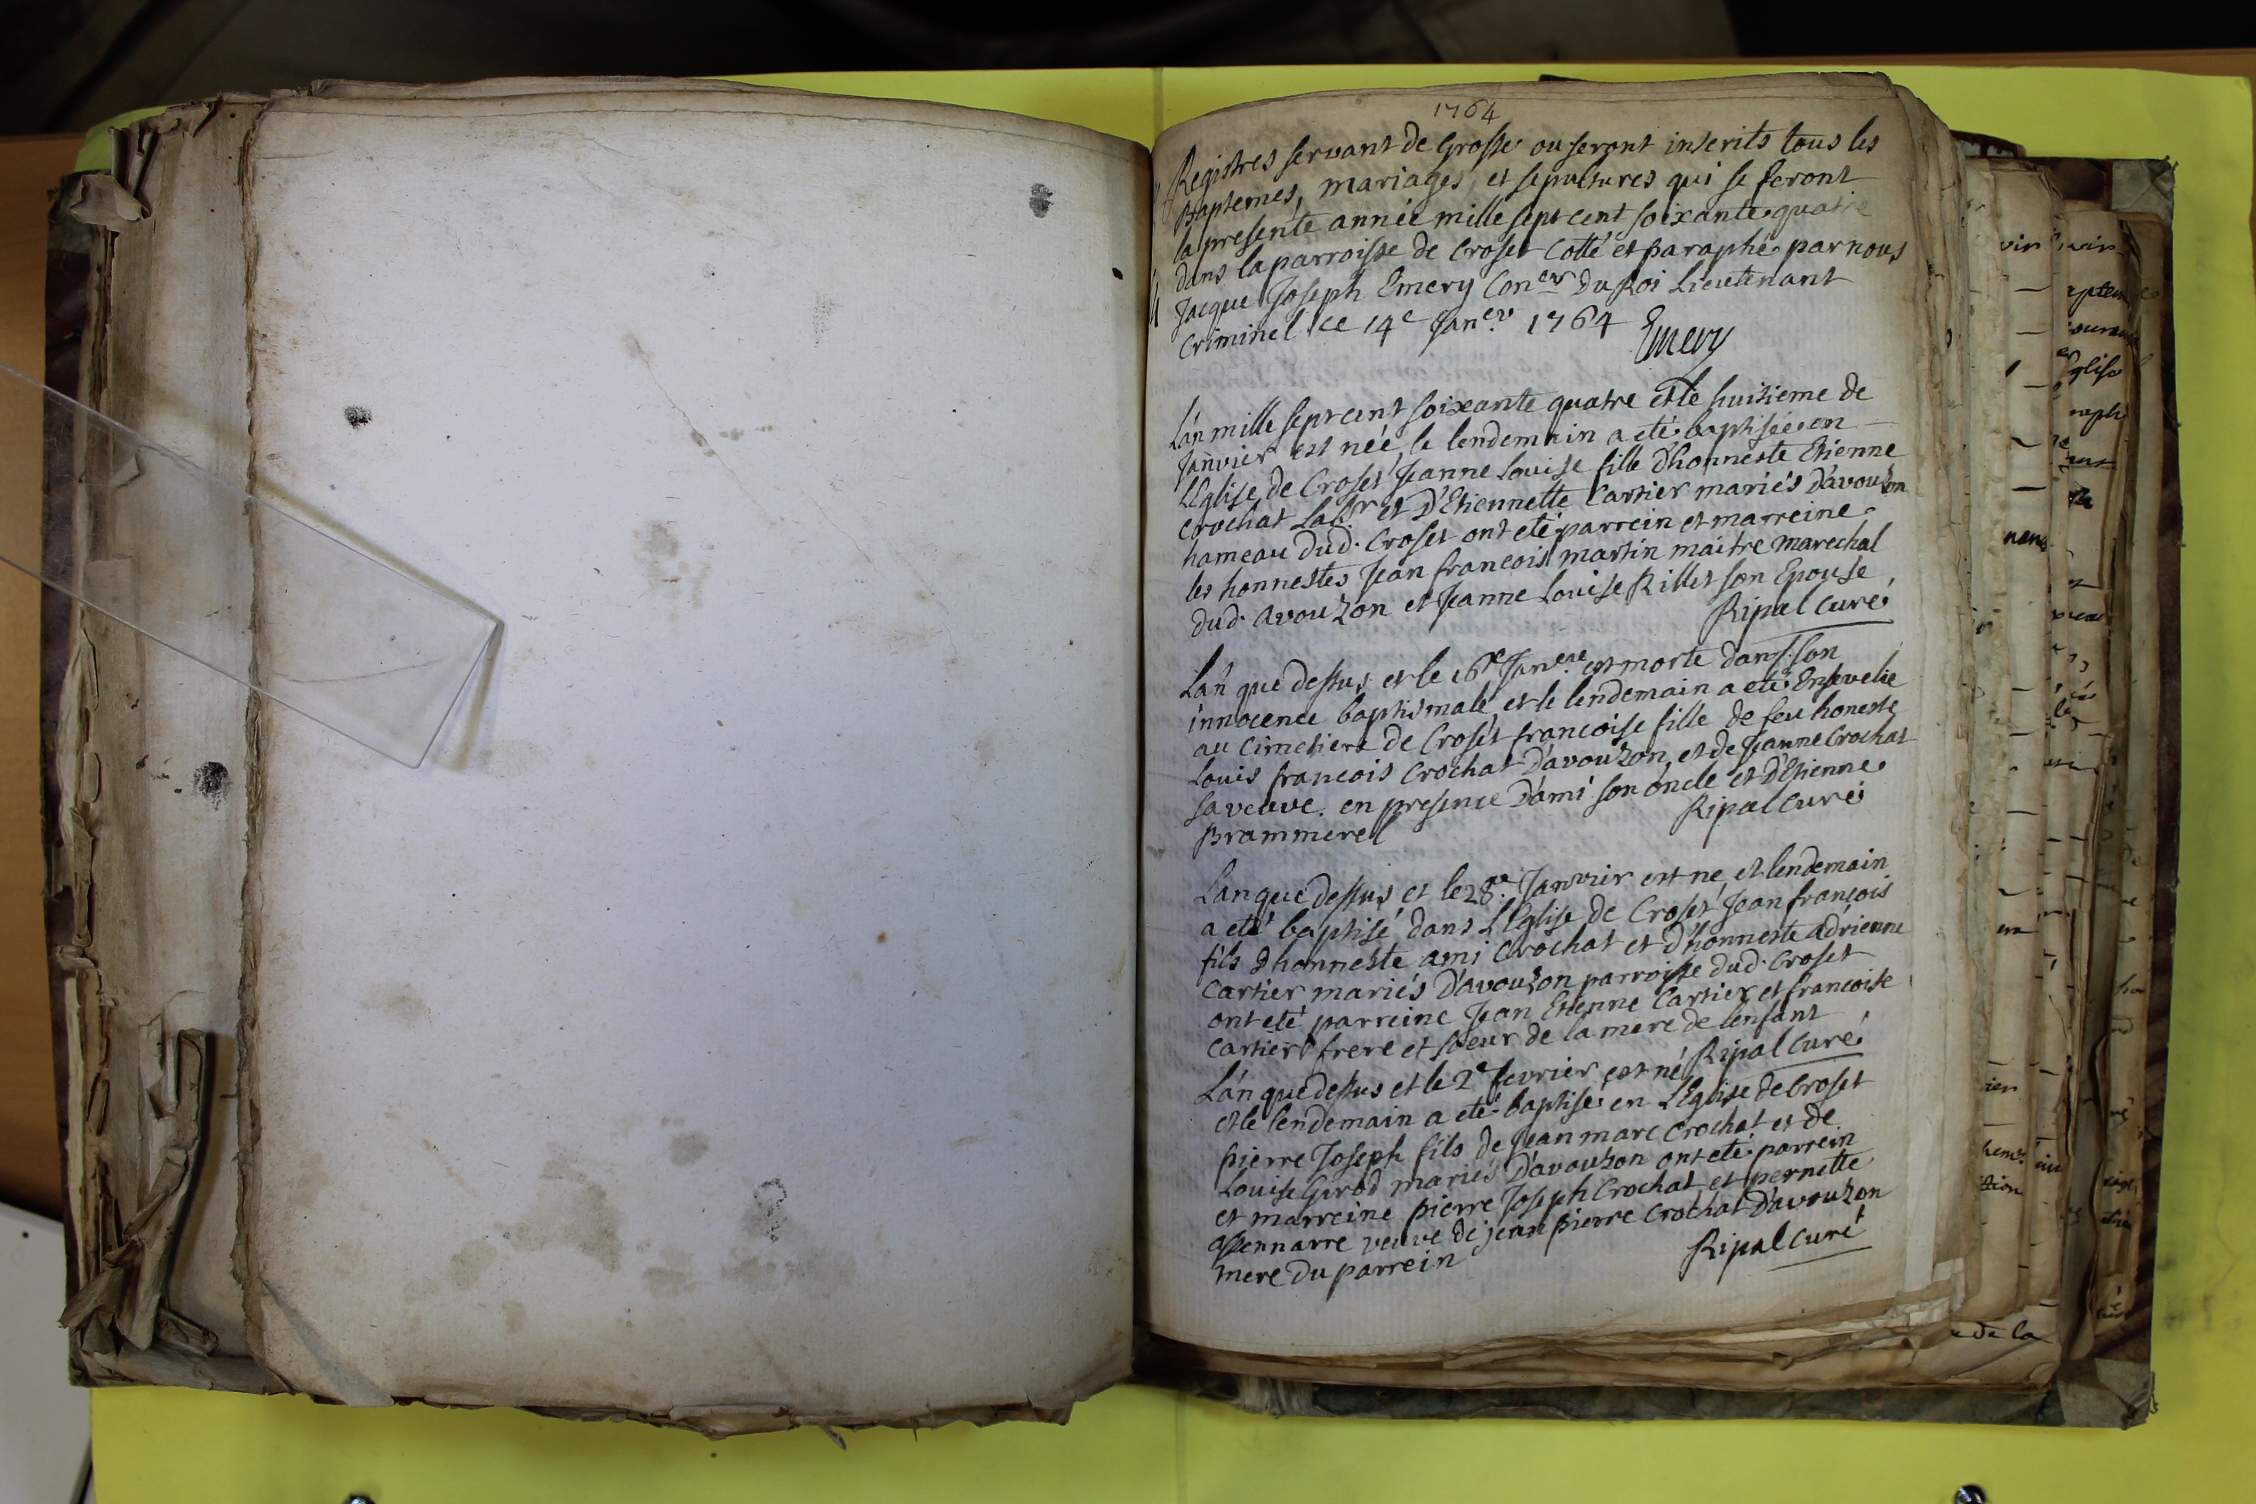 1764
Registres servant de Grosse ou seront inscrits tous les
Baptemes, mariages, et sepultures qui se feront
la presente année mille sept cent soixante quatre
dans la parroisse de Croset Cotté et paraphé par nous
Jacque Joseph Emery Con.er Du Roi Lieutenant
Criminel ce 14e Jan.er 1764 Emery
L'an mille sept cent soixante quatre et le huitieme de
Janvier est née, le lendemain a eté baptisée en
L'Eglise de Croset Jeanne Louise fille d'honneste Etienne
Crochat Lab.r et D'Etiennette Cartier mariés D'avouzon
hameau dud. Croset ont eté parrein et marreine
les honnestes Jean francois martin maitre marechal
dud. avouzon et Jeanne Louise Rillet son Epouse
Ripal Curé
L'an que dessus et le 16e Jan.er est morte dans son
innocence baptismale et le lendemain a eté Ensevelie
au Cimetiere de Croset francoise fille de feu honeste
Louis francois Crochat D'avouzon et de Jeanne Crochat
sa veuve. en presence D'ami son oncle et D'Etienne
Brammerel Ripal Curé
L'an que dessus et le 28e Janvier est ne et lendemain
a eté baptisé dans L'Eglise de Croset Jean françois
fils D'honneste ami Crochat et d'honneste adrienne
Cartier mariés D'avouzon parroisse dud. Croset
ont eté parreine Jean Etienne Cartier et francoise
Cartier frere et soeur de la mere de l'enfant
Ripal Curé
L'an que dessus et le 2e fevrier est né
et le lendemain a eté baptisé en L'Eglise de Croset
pierre Joseph fils de Jean marc Crochat et de
Louise Girod mariés D'avouzon ont eté parrein
et marreine pierre Joseph Crochat et pernette
veuve de jean pierre Crochat D'avouzon
mere du parrein Ripal Curé